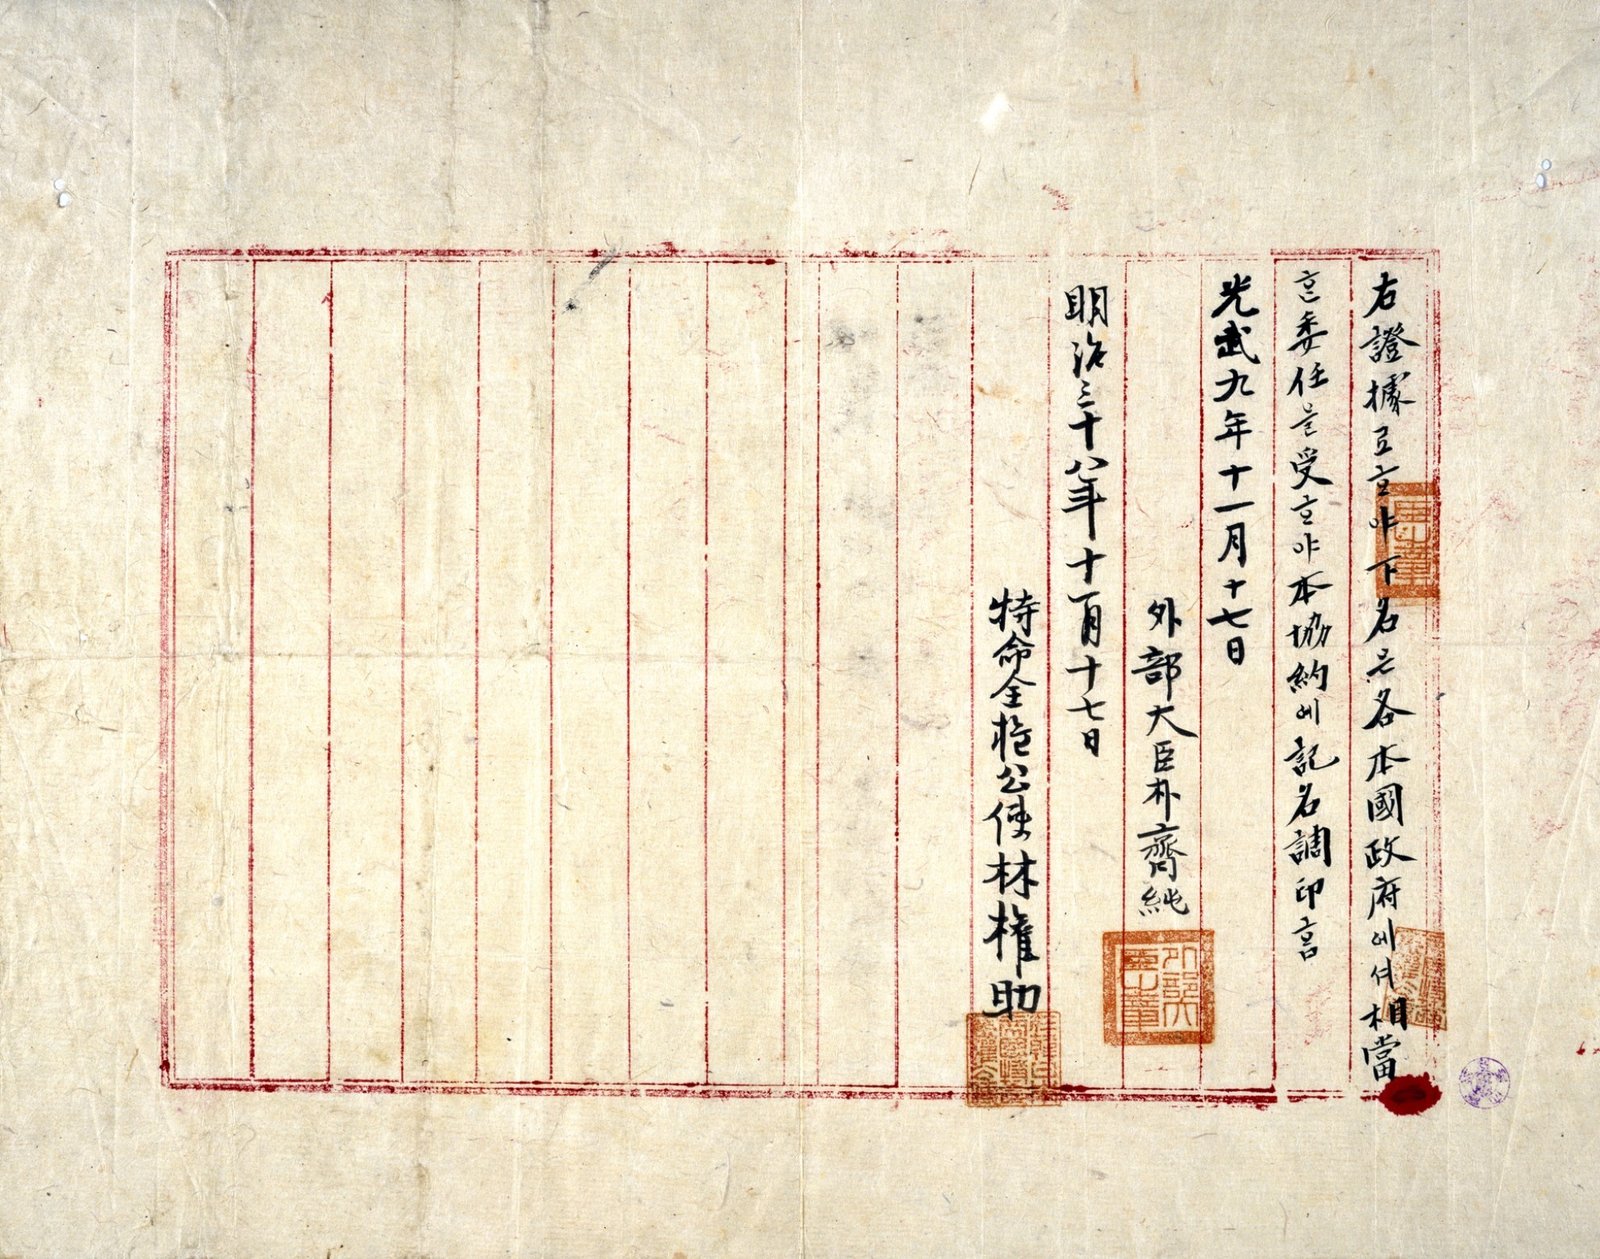 右證據로ᄒᆞ야下名은各本國政府에셔相當
ᄒᆞᆫ委任을受ᄒᆞ야本協約에記名調印ᄒᆞᆷ
光武九年十一月十七日
外部大臣朴齊純
外部大臣之章
明治三十八年十一月十七日
特命全權公使林權助